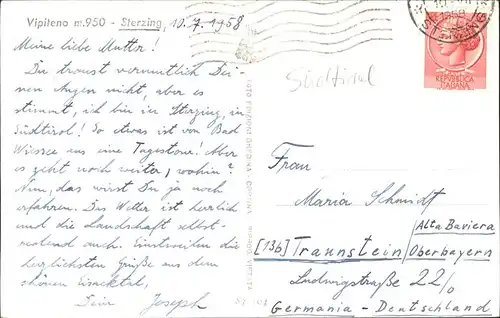 Vipiteno m.950 - Sterzing, 10.7.1958
Meine liebe Mutter!
Du traust vermutlich Dei-
nen Augen nicht, aber es
stimmt, ich bin in Sterzing, in
Südtirol! So etwas ist von Bad
Wiessee aus eine Tagestour! Aber
es geht noch weiter, wohin?
Nun, das wirst Du ja noch
erfahren. Das Wetter ist herrlich
und die Landschaft selbst-
redend auch. Einstweilen die
herzlichsten Grüße aus dem
schönen Eisacktal,
Dein Joseph
Südtirol
REPUBBLICA
ITALIANA
Frau
Maria Schmidt
[13b] Traunstein/Alta Baviera
Oberbayern
Ludwigstraße 22/0
Germania - Deutschland